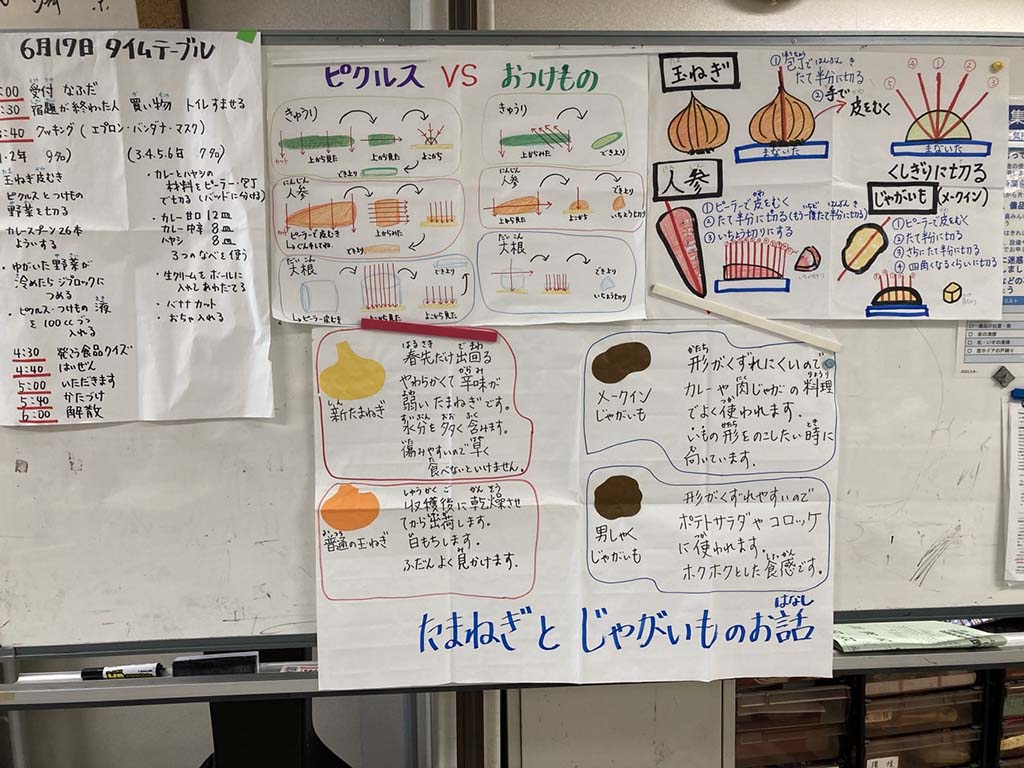 6月17日 タイムテーブル
:00 受付 なふだ
:30 宿題が終わった人 買い物 トイレすませる
:40 クッキング(エプロン・バンダナ・マスク)
・2年 9%)
(3.4.5.6年 7%)
玉ねぎ皮むき
ピクルスとつけもの
野菜を切る
カレースプーン26本
よういする
・ゆがいた野菜が
冷めたらジプロックに
つめる
・ピクルス・つけもの 液
を100ccづつ
入れる
・カレーとハヤシの
材料をピーラー・包丁
でも切る(バッドに分ける)
・カレー甘口 12皿
・カレー中辛 8皿
・ハヤシ 8皿
3つのなべを使う
・生クリームをボールに
入れしあわだてる
・バナナカット
・おちゃ入れる
4:30 発こう食品クイズ
4:40 はいぜん
5:00 いただきます
5:40 かたづけ
6:00 解散
ピクルス VS おつけもの
きゅうり
上から見た
上から見た
よこから
できより
にんじん
人参
ピーラーで皮むき
上から見た
できより
だいこん
大根
ピーラー皮むき
上から見た
できより
きゅうり
上からみた
できより
にんじん
人参
上から見た
よこから
いちょう切り
だいこん
大根
できより
いちょう切り
玉ねぎ
①包丁ではんぶん
たて半分に切る
②手で
皮をむく
まないた
④ ① ②
⑤
まないた
くしぎりに切る
人参
①ピーラーで皮をむく
②たて半分に切る(もう一度たて半分に切る)
③いちょう切りにする
じゃがいも(メークイン)
①ピーラーで皮をむく
②たて半分に切る
③さらにたて半分に切る
④四角くなるくらいに切る
しん
新たまねぎ
はるさき で まわ
春先だけ出回る
からみ
やわらかくて 辛味が
よわ
弱い たまねぎです。
すいぶん おお ふく
水分を多く含みます。
傷みやすいので早く
食べないといけません。
ふつう
普通の玉ねぎ
しゅうかく ご かん そう
収穫後に乾燥させ
てから出荷します。
日もちします。
ふだんよく見かけます。
メークイン
じゃがいも
かたち
形がくずれにくいので
りょうり
カレーや肉じゃがの料理
でよく使われます。
かたち
いもの形をのこしたい時に
向いています。
男しゃく
じゃがいも
形がくずれやすいので
ポテトサラダやコロッケ
に使われます。
しょっかん
ホクホクとした食感です。
はなし
たまねぎとじゃがいものお話